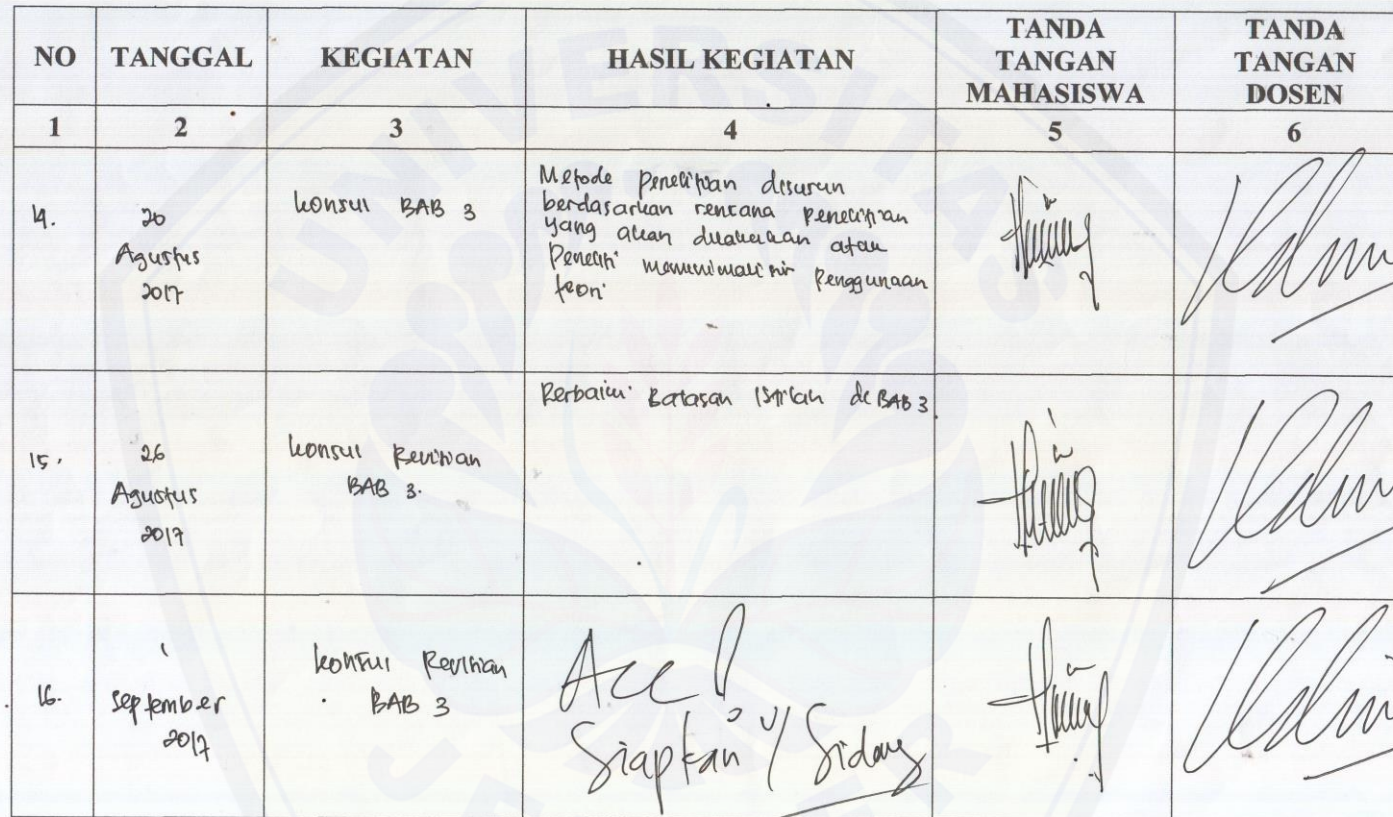 NO TANGGAL KEGIATAN HASIL KEGIATAN TANDA TANGAN MAHASISWA TANDA TANGAN DOSEN
1 2 3 4 5 6
14.
20
Agustus
2017
konsul BAB 3
Metode Penelitian disusun
berdasarkan rencana penelitian
yang akan dilakukan atau
Peneliti meminimalisir Penggunaan
teori
15.
26
Agustus
2017
konsul Revisian
BAB 3.
Perbaiki Batasan Istilah di BAB 3.
16.
1
September
2017
konsul Revisian
BAB 3
Acc!
Siapkan u/ Sidang
UNIVERSITAS
JEMBER